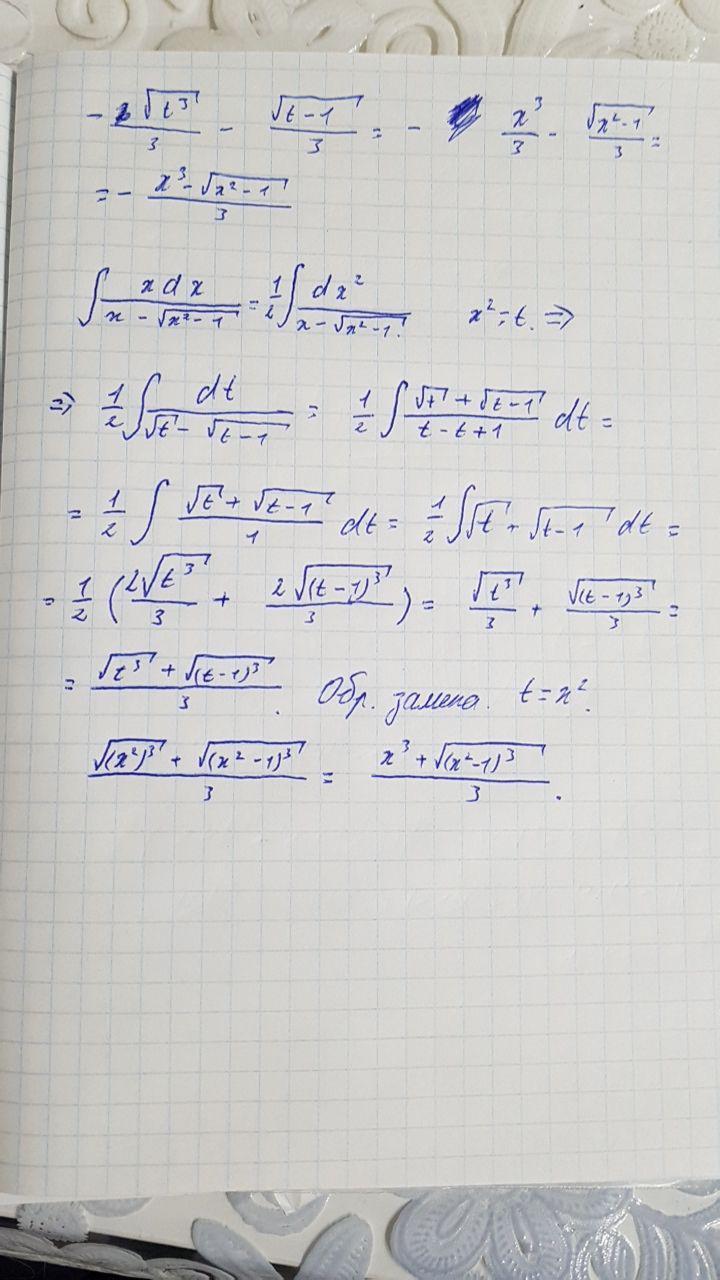 - √(t³)/3 - √(t-1)/3 = - x³/3 - √(x²-1)/3 =
= - (x³ - √(x²-1))/3
∫ x dx/(x - √(x²-1)) = 1/2 ∫ dx²/(x - √(x²-1)). x² = t. ⇒
⇒ 1/2 ∫ dt/(√t - √(t-1)) = 1/2 ∫ (√t + √(t-1))/(t - t + 1) dt =
= 1/2 ∫ (√t + √(t-1))/1 dt = 1/2 ∫ √t + √(t-1) dt =
= 1/2 (2√(t³)/3 + 2√((t-1)³)/3) = √(t³)/3 + √((t-1)³)/3 =
= (√(t³) + √((t-1)³))/3. Обр. замена. t = x².
(√((x²)³) + √((x²-1)³))/3 = (x³ + √((x²-1)³))/3.